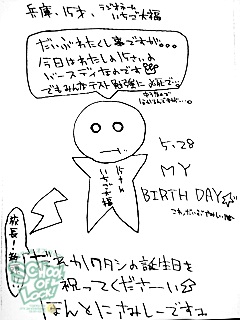 兵庫、15才、ラジオネーム
いちご大福
だいぶわたくし事ですが。。。
今日はわたしの15さいの
バースディなのです
でもみんなテスト勉強に お忙しで…
15さい
いちご大福
5.28
MY
BIRTH DAY
校長!
だれかワタシの誕生日を
祝ってくださーい
ほんとにさみしーですよ
SCHOOL OF LOCK!